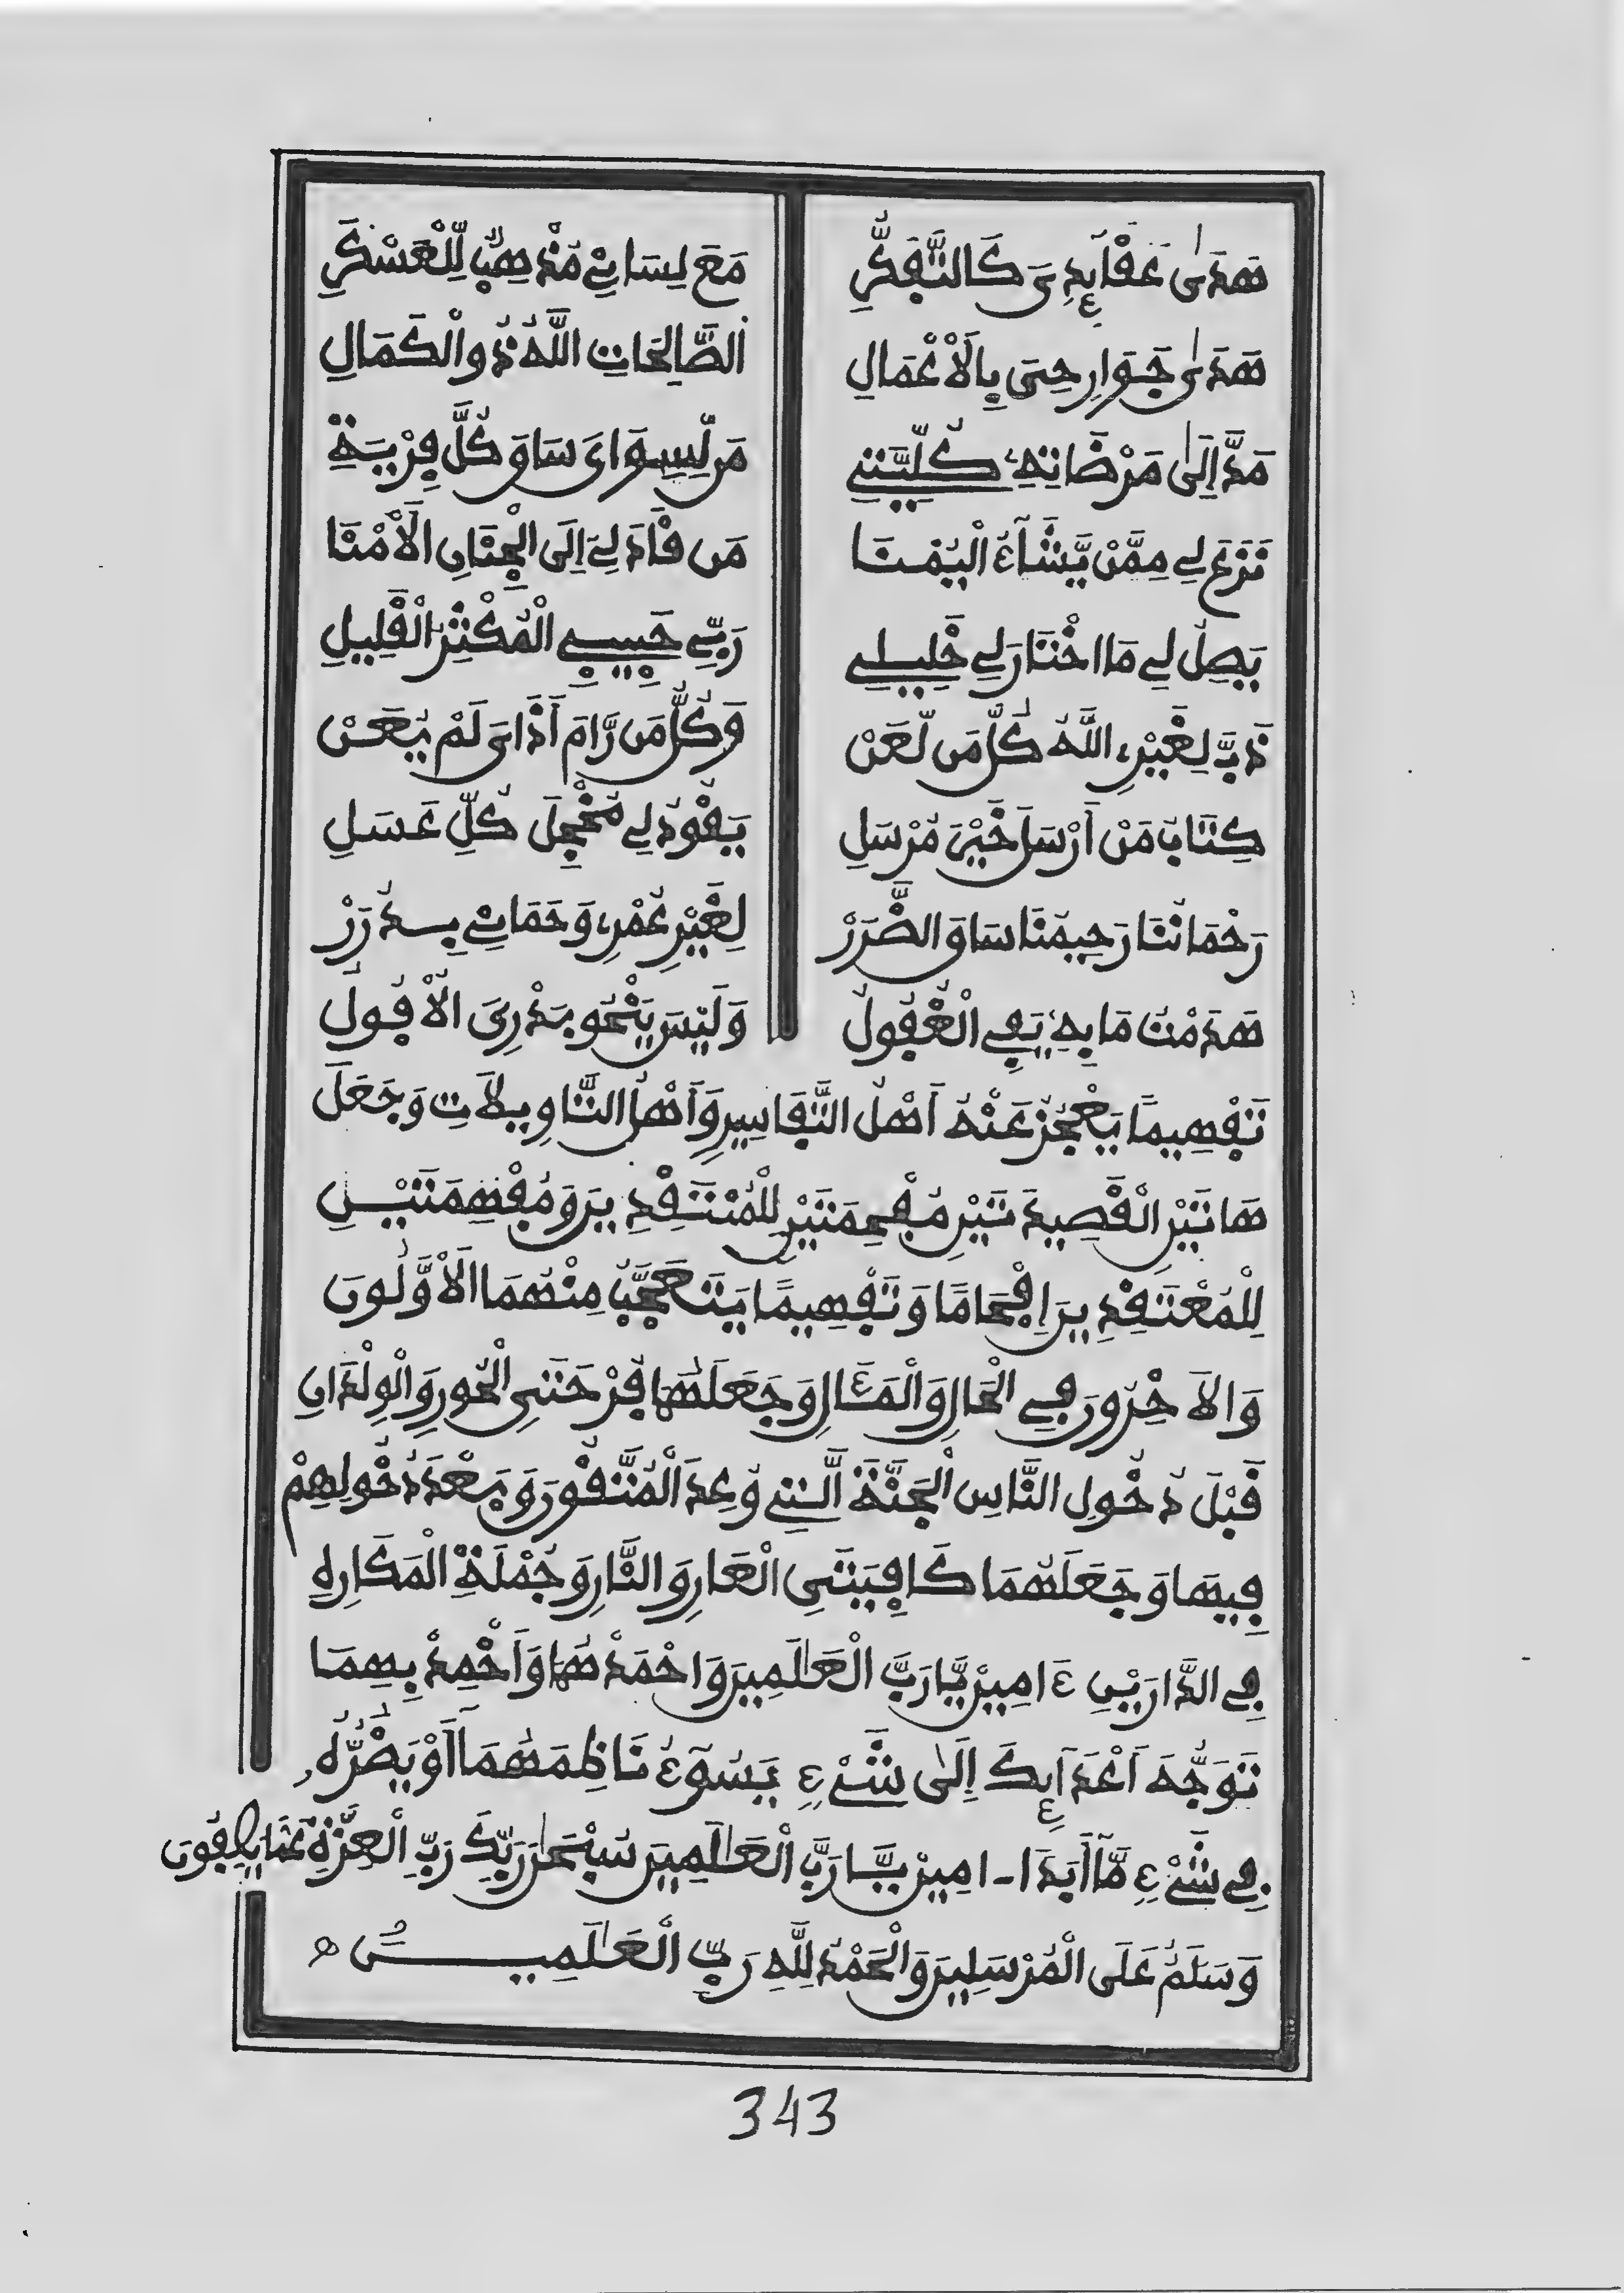 هَدَى عَقَائِدِي كَالتَّفَكُّرِ مَعَ لِسَانِي مُذْهِبٌ لِّلْعَسْكَرِ
هَدَى جَوَارِحِي بِالْأَعْمَالِ الصَّالِحَاتِ اللَّهُ ذُو الْكَمَالِ
مَدَّ إِلَى مَرْضَاتِهِ كُلِّيَّتِي مَن لِّسِوَايَ سَاقَ كُلَّ فِرْيَةِ
نَزَعَ لِي مِمَّنْ يَّشَآءُ الْيُمْنَا مَن قَادَ لِي إِلَى الْجِنَانِ الْأَمْنَا
يَصِلُ لِي مَا اخْتَارَ لِي خَلِيلِي رَبِّي حَبِيبِي الْمُكْثِرُ الْقَلِيلِ
ذَبَّ لِغَيْرِي اللَّهُ كُلَّ مَن لَّعَنْ وَكُلُّ مَن رَّامَ أَذَايَ لَمْ يُعَنْ
كِتَابُ مَنْ أَرْسَلَ خَيْرَ مُرْسَلِ يَقُودُ لِي مُخْجِلَ كُلِّ عَسَلِ
رَحْمَانُنَا رَحِيمُنَا سَاقَ الضَّرَرْ لِغَيْرِ عُمْرِي وَحَمَانِي بِدُرَرْ
هَدَمْتُ مَا بِهِ يَفِي الْغُفُولُ وَلَيْسَ يَنْحُو بَدْرِيَ الْأُفُولُ
تَفْهِيمًا يَعْجِزُ عَنْهُ أَهْلُ التَّفَاسِيرِ وَأَهْلُ التَّاوِيلَاتِ وَجَعَلَ
هَاتَيْنِ الْقَصِيدَتَيْنِ مُفْحِمَتَيْنِ لِلْمُنْتَقِدِينَ وَمُفْهِمَتَيْنِ
لِلْمُعْتَقِدِينَ إِفْحَامًا وَتَفْهِيمًا يَتَعَجَّبُ مِنْهُمَا الْأَوَّلُونَ
وَالْآخِرُونَ فِي الْحَالِ وَالْمَئَالِ وَجَعَلَهُمَا فَرْحَتَيِ الْحُورِ وَالْوِلْدَانِ
قَبْلَ دُخُولِ النَّاسِ الْجَنَّةَ الَّتِي وُعِدَ الْمُتَّقُونَ وَبَعْدَ دُخُولِهِمْ
فِيهَا وَجَعَلَهُمَا كَافِيَتَيِ الْعَارِ وَالنَّارِ وَجُمْلَةِ الْمَكَارِهِ
فِي الدَّارَيْنِ ءَامِينْ يَّا رَبَّ الْعَالَمِينَ وَاحْمَدْهُمَا وَأَخْمِدْ بِهِمَا
تَوَجُّهَ أَعْدَآئِكَ إِلَى شَيْءٍ يَسُوٓءُ نَاظِمَهُمَا أَوْ يَضُرُّهُ
فِي شَيْءٍ مَّا أَبَدًا ـ امِينْ يَّا رَبَّ الْعَالَمِينَ سُبْحَانَ رَبِّكَ رَبِّ الْعِزَّةِ عَمَّا يَصِفُونَ
وَسَلَٰمٌ عَلَى الْمُرْسَلِينَ وَالْحَمْدُ لِلَّهِ رَبِّ الْعَٰلَمِينَ
343